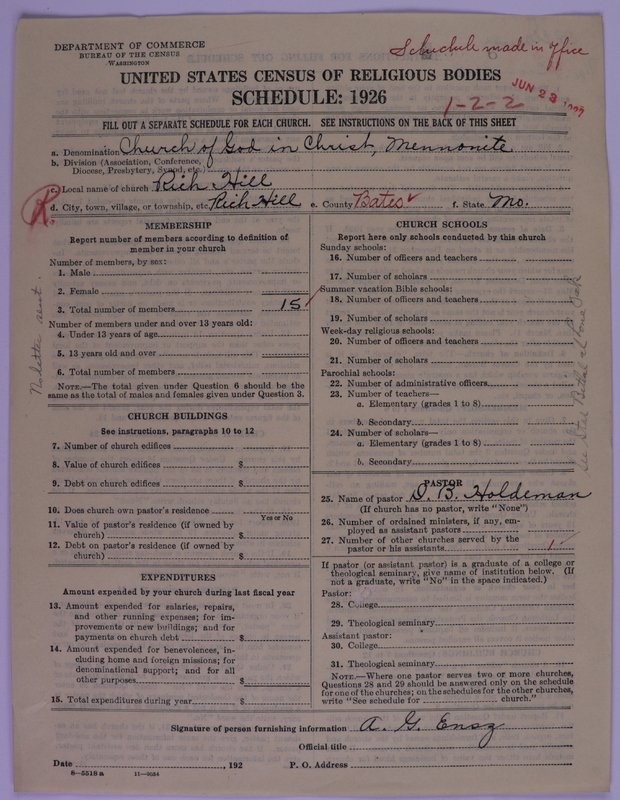 DEPARTMENT OF COMMERCE
BUREAU OF THE CENSUS
WASHINGTON
Schedule made in office
UNITED STATES CENSUS OF RELIGIOUS BODIES
SCHEDULE: 1926
JUN 23
1-2-2
FILL OUT A SEPARATE SCHEDULE FOR EACH CHURCH. SEE INSTRUCTIONS ON THE BACK OF THIS SHEET
a. Denomination Church of God in Christ, Mennonite
b. Division (Association, Conference, Diocese, Presbytery, Synod, etc.)
c. Local name of church Rich Hill
R.
d. City, town, village, or township, etc. Rich Hill e. County Bates f. State Mo.
MEMBERSHIP
Report number of members according to definition of
member in your church
Number of members, by sex:
1. Male
2. Female
3. Total number of members 15
Number of members under and over 13 years old:
4. Under 13 years of age
5. 13 years old and over
6. Total number of members
NOTE.—The total given under Question 6 should be the
same as the total of males and females given under Question 3.
CHURCH BUILDINGS
See instructions, paragraphs 10 to 12
7. Number of church edifices
8. Value of church edifices $
9. Debt on church edifices $
10. Does church own pastor's residence
Yes or No
11. Value of pastor's residence (if owned by
church) $
12. Debt on pastor's residence (if owned by
church) $
EXPENDITURES
Amount expended by your church during last fiscal year
13. Amount expended for salaries, repairs,
and other running expenses; for im-
provements or new buildings; and for
payments on church debt $
14. Amount expended for benevolences, in-
cluding home and foreign missions; for
denominational support; and for all
other purposes $
15. Total expenditures during year $
CHURCH SCHOOLS
Report here only schools conducted by this church
Sunday schools:
16. Number of officers and teachers
17. Number of scholars
Summer vacation Bible schools:
18. Number of officers and teachers
19. Number of scholars
Week-day religious schools:
20. Number of officers and teachers
21. Number of scholars
Parochial schools:
22. Number of administrative officers
23. Number of teachers—
a. Elementary (grades 1 to 8)
b. Secondary
24. Number of scholars—
a. Elementary (grades 1 to 8)
b. Secondary
PASTOR
25. Name of pastor D. B. Holdeman
(If church has no pastor, write "None")
26. Number of ordained ministers, if any, em-
ployed as assistant pastors
27. Number of other churches served by the
pastor or his assistants 1
If pastor (or assistant pastor) is a graduate of a college or
theological seminary, give name of institution below. (If
not a graduate, write "No" in the space indicated.)
Pastor:
28. College
29. Theological seminary
Assistant pastor:
30. College
31. Theological seminary
NOTE.—Where one pastor serves two or more churches,
Questions 28 and 29 should be answered only on the schedule
for one of the churches; on the schedules for the other churches,
write "See schedule for church."
No letter sent.
Signature of person furnishing information A. G. Ensz
Official title
Date , 192 P. O. Address
8—5518 a 11—9034